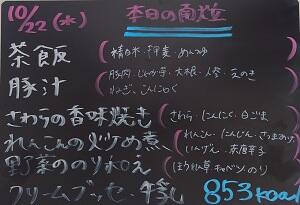 10/22(水) 本日の献立
茶飯 (精白米・押麦・めんつゆ
豚汁 (豚肉・じゃが芋・大根・人参・えのき
ねぎ・こんにゃく
さわらの香味焼き (さわら・にんにく・白ごま
れんこんの炒め煮 (れんこん・にんじん・さつまあげ
いんげん・唐辛子
野菜ののり和え (ほうれん草・キャベツ・のり
クリームブッセ 牛乳 853kcal